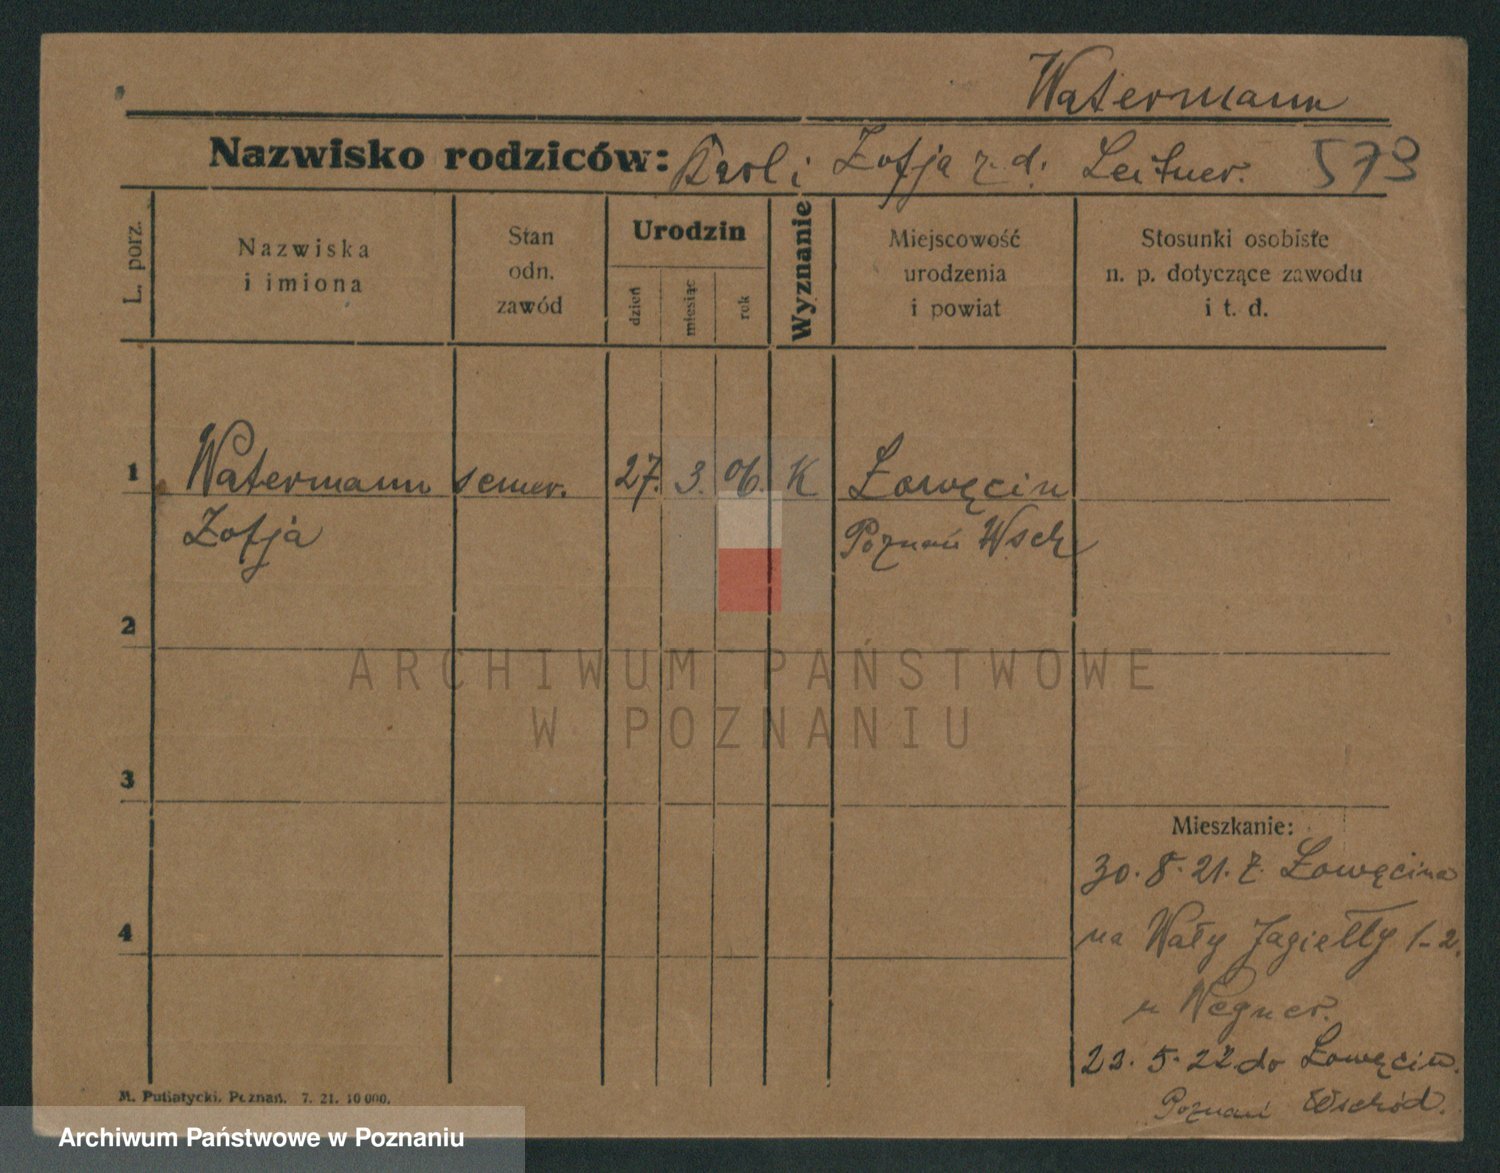 Watermann
Nazwisko rodziców: Karol i Zofja z. d. Leitner. 573
L. porz.
Nazwiska
i imiona
Stan
odn.
zawód
Urodzin
dzień
miesiąc
rok
Wyznanie
Miejscowość
urodzenia
i powiat
Stosunki osobiste
n. p. dotyczące zawodu
i t. d.
1 Watermann semer. 27. 3. 06. K Łowęcin
Zofja Poznań Wsch
2
ARCHIWUM PAŃSTWOWE
W POZNANIU
3
Mieszkanie:
30. 8. 21. z Łowęcina
4 na Wały Jagiełły 1-2.
u Wegner.
23. 5. 22 do Łowęcin.
Poznań Wschód.
M. Putiatycki, Poznań. 7. 21. 10 000.
Archiwum Państwowe w Poznaniu